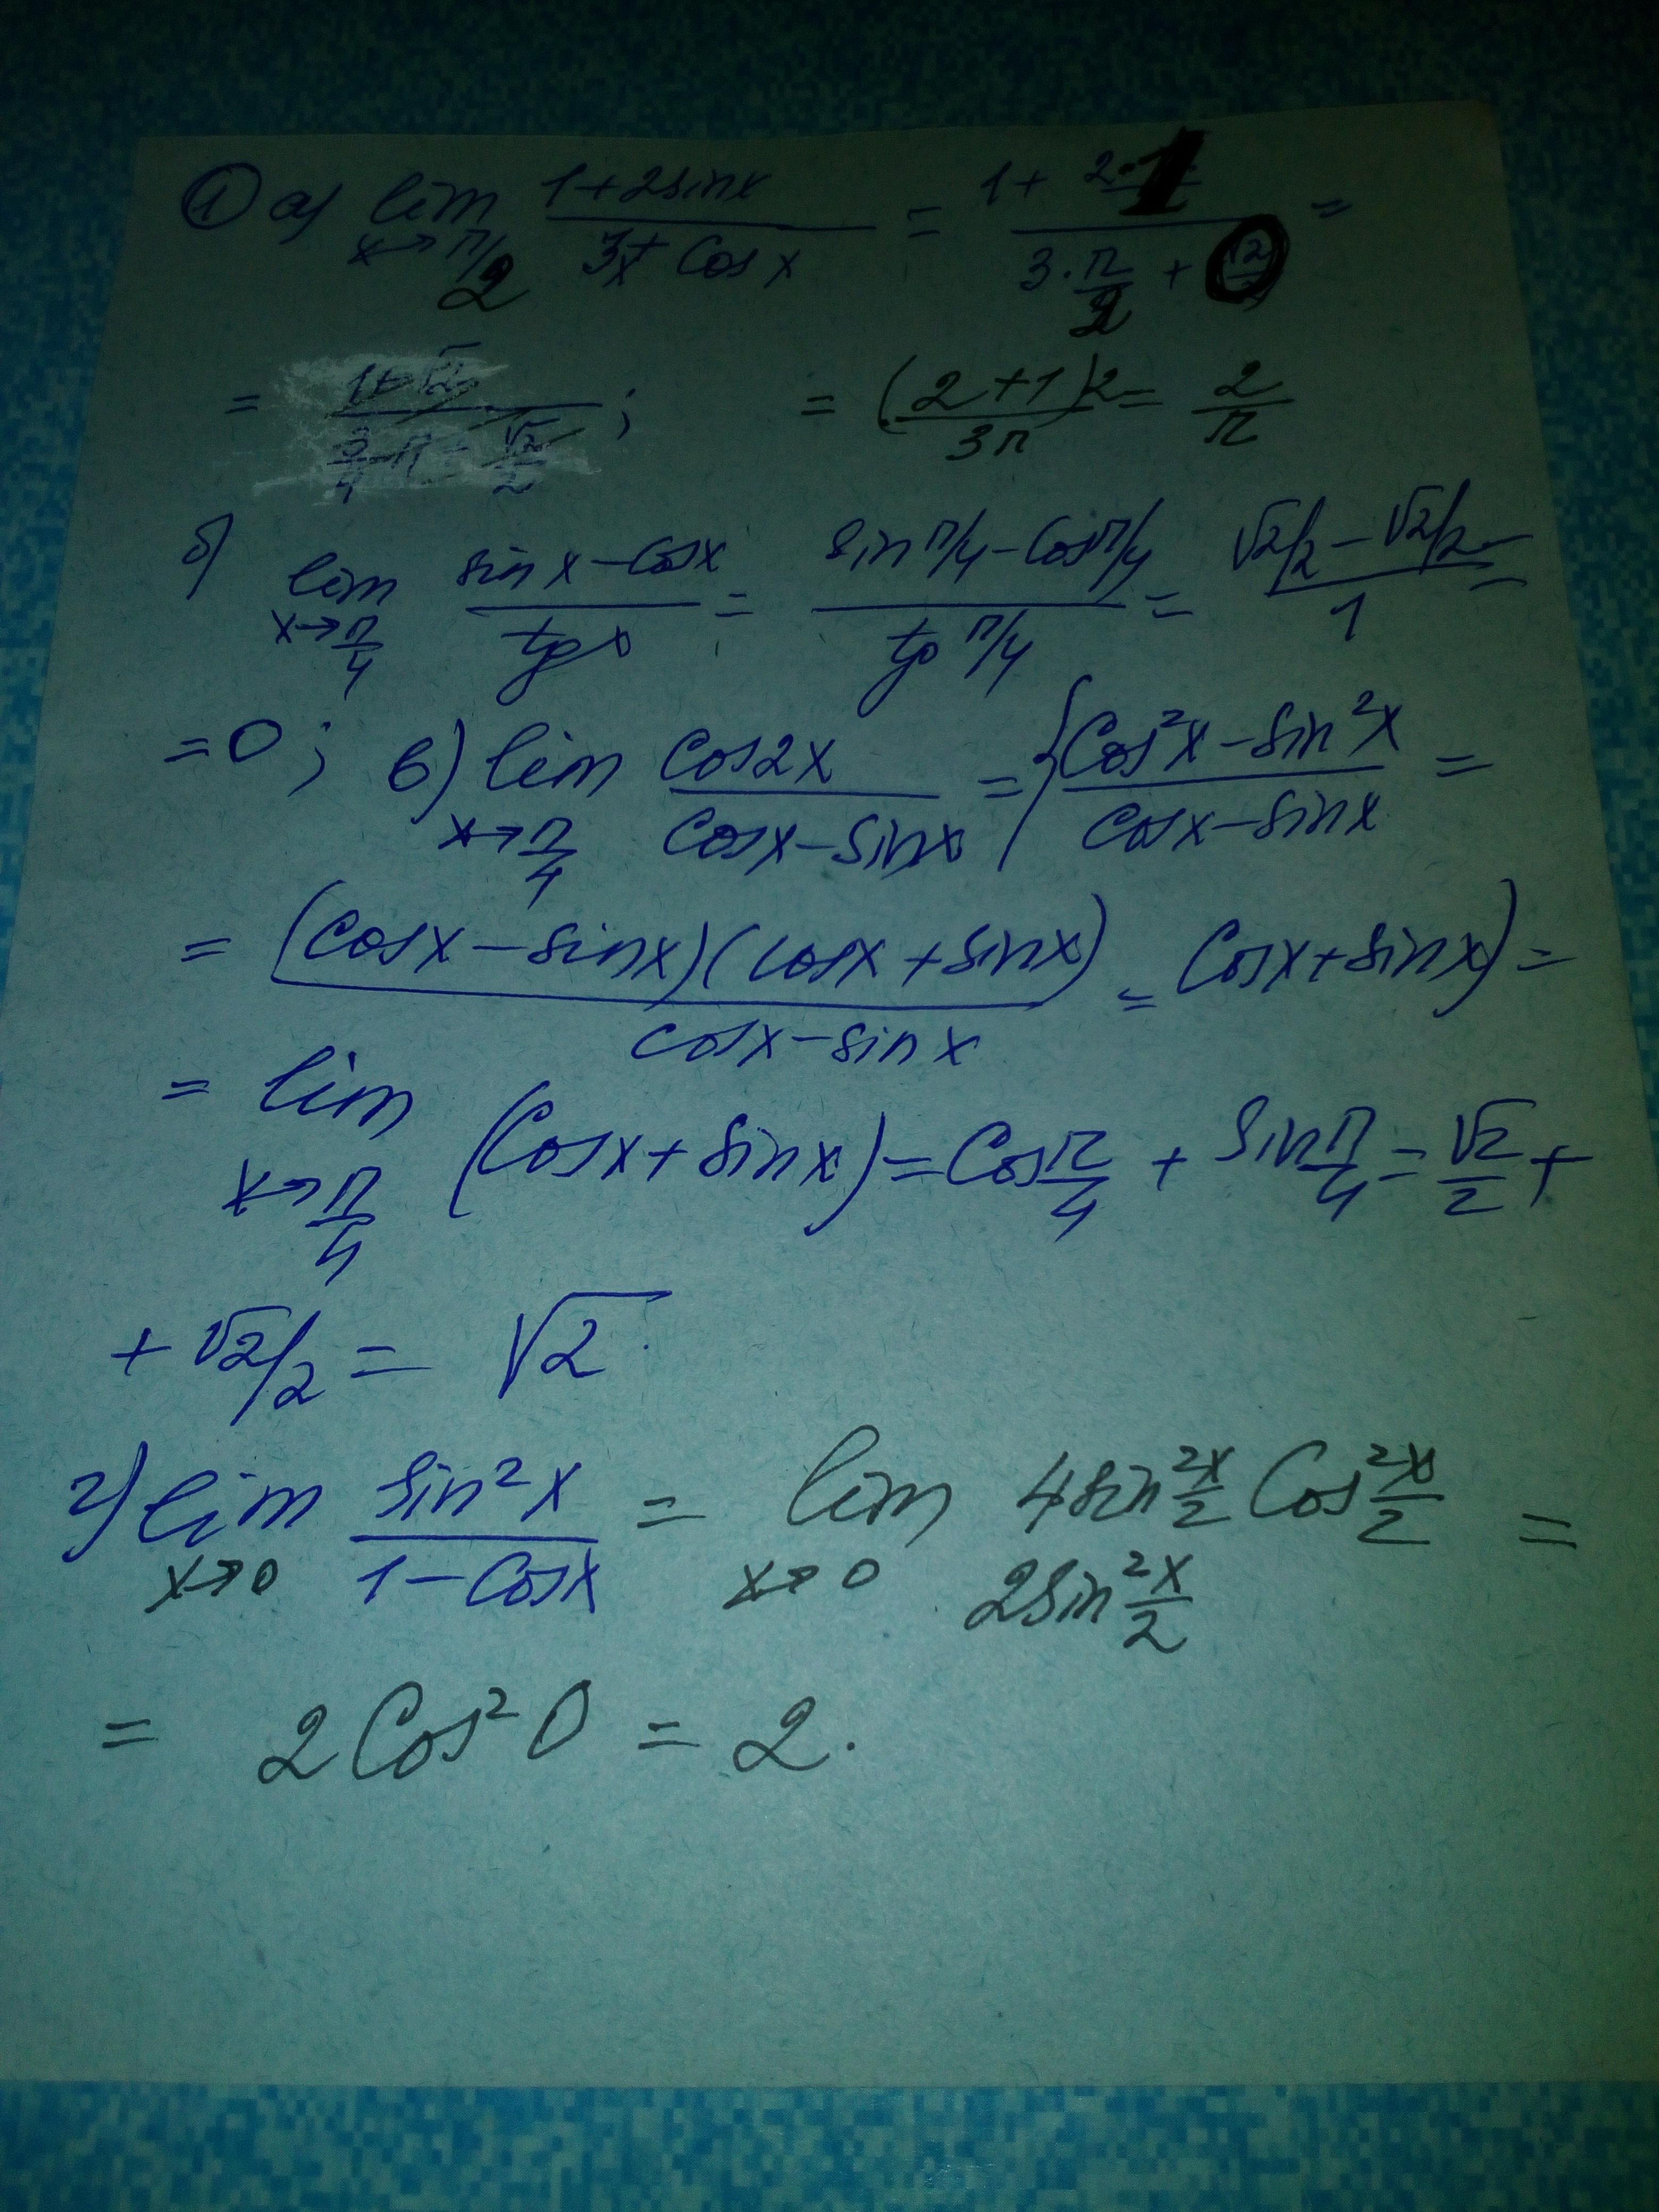 ① а) lim x→π/2 (1+2sinx)/(3x+Cosx) = (1+2·1)/(3·π/2+0) =
= ; = (2+1)2/3π = 2/π
б) lim x→π/4 (sinx-Cosx)/tgx = (sinπ/4-Cosπ/4)/tgπ/4 = (√2/2-√2/2)/1 =
=0; в) lim x→π/4 Cos2x/(Cosx-Sinx) = {(Cos²x-Sin²x)/(Cosx-sinx) =
= (Cosx-sinx)(Cosx+sinx)/(Cosx-sinx) = Cosx+sinx) =
= lim x→π/4 (Cosx+sinx) = Cos π/4 + Sin π/4 = √2/2 +
+ √2/2 = √2.
г) lim x→0 sin²x/(1-Cosx) = lim x→0 4sin² x/2 Cos² x/2 / 2Sin² x/2 =
= 2Cos²0 = 2.